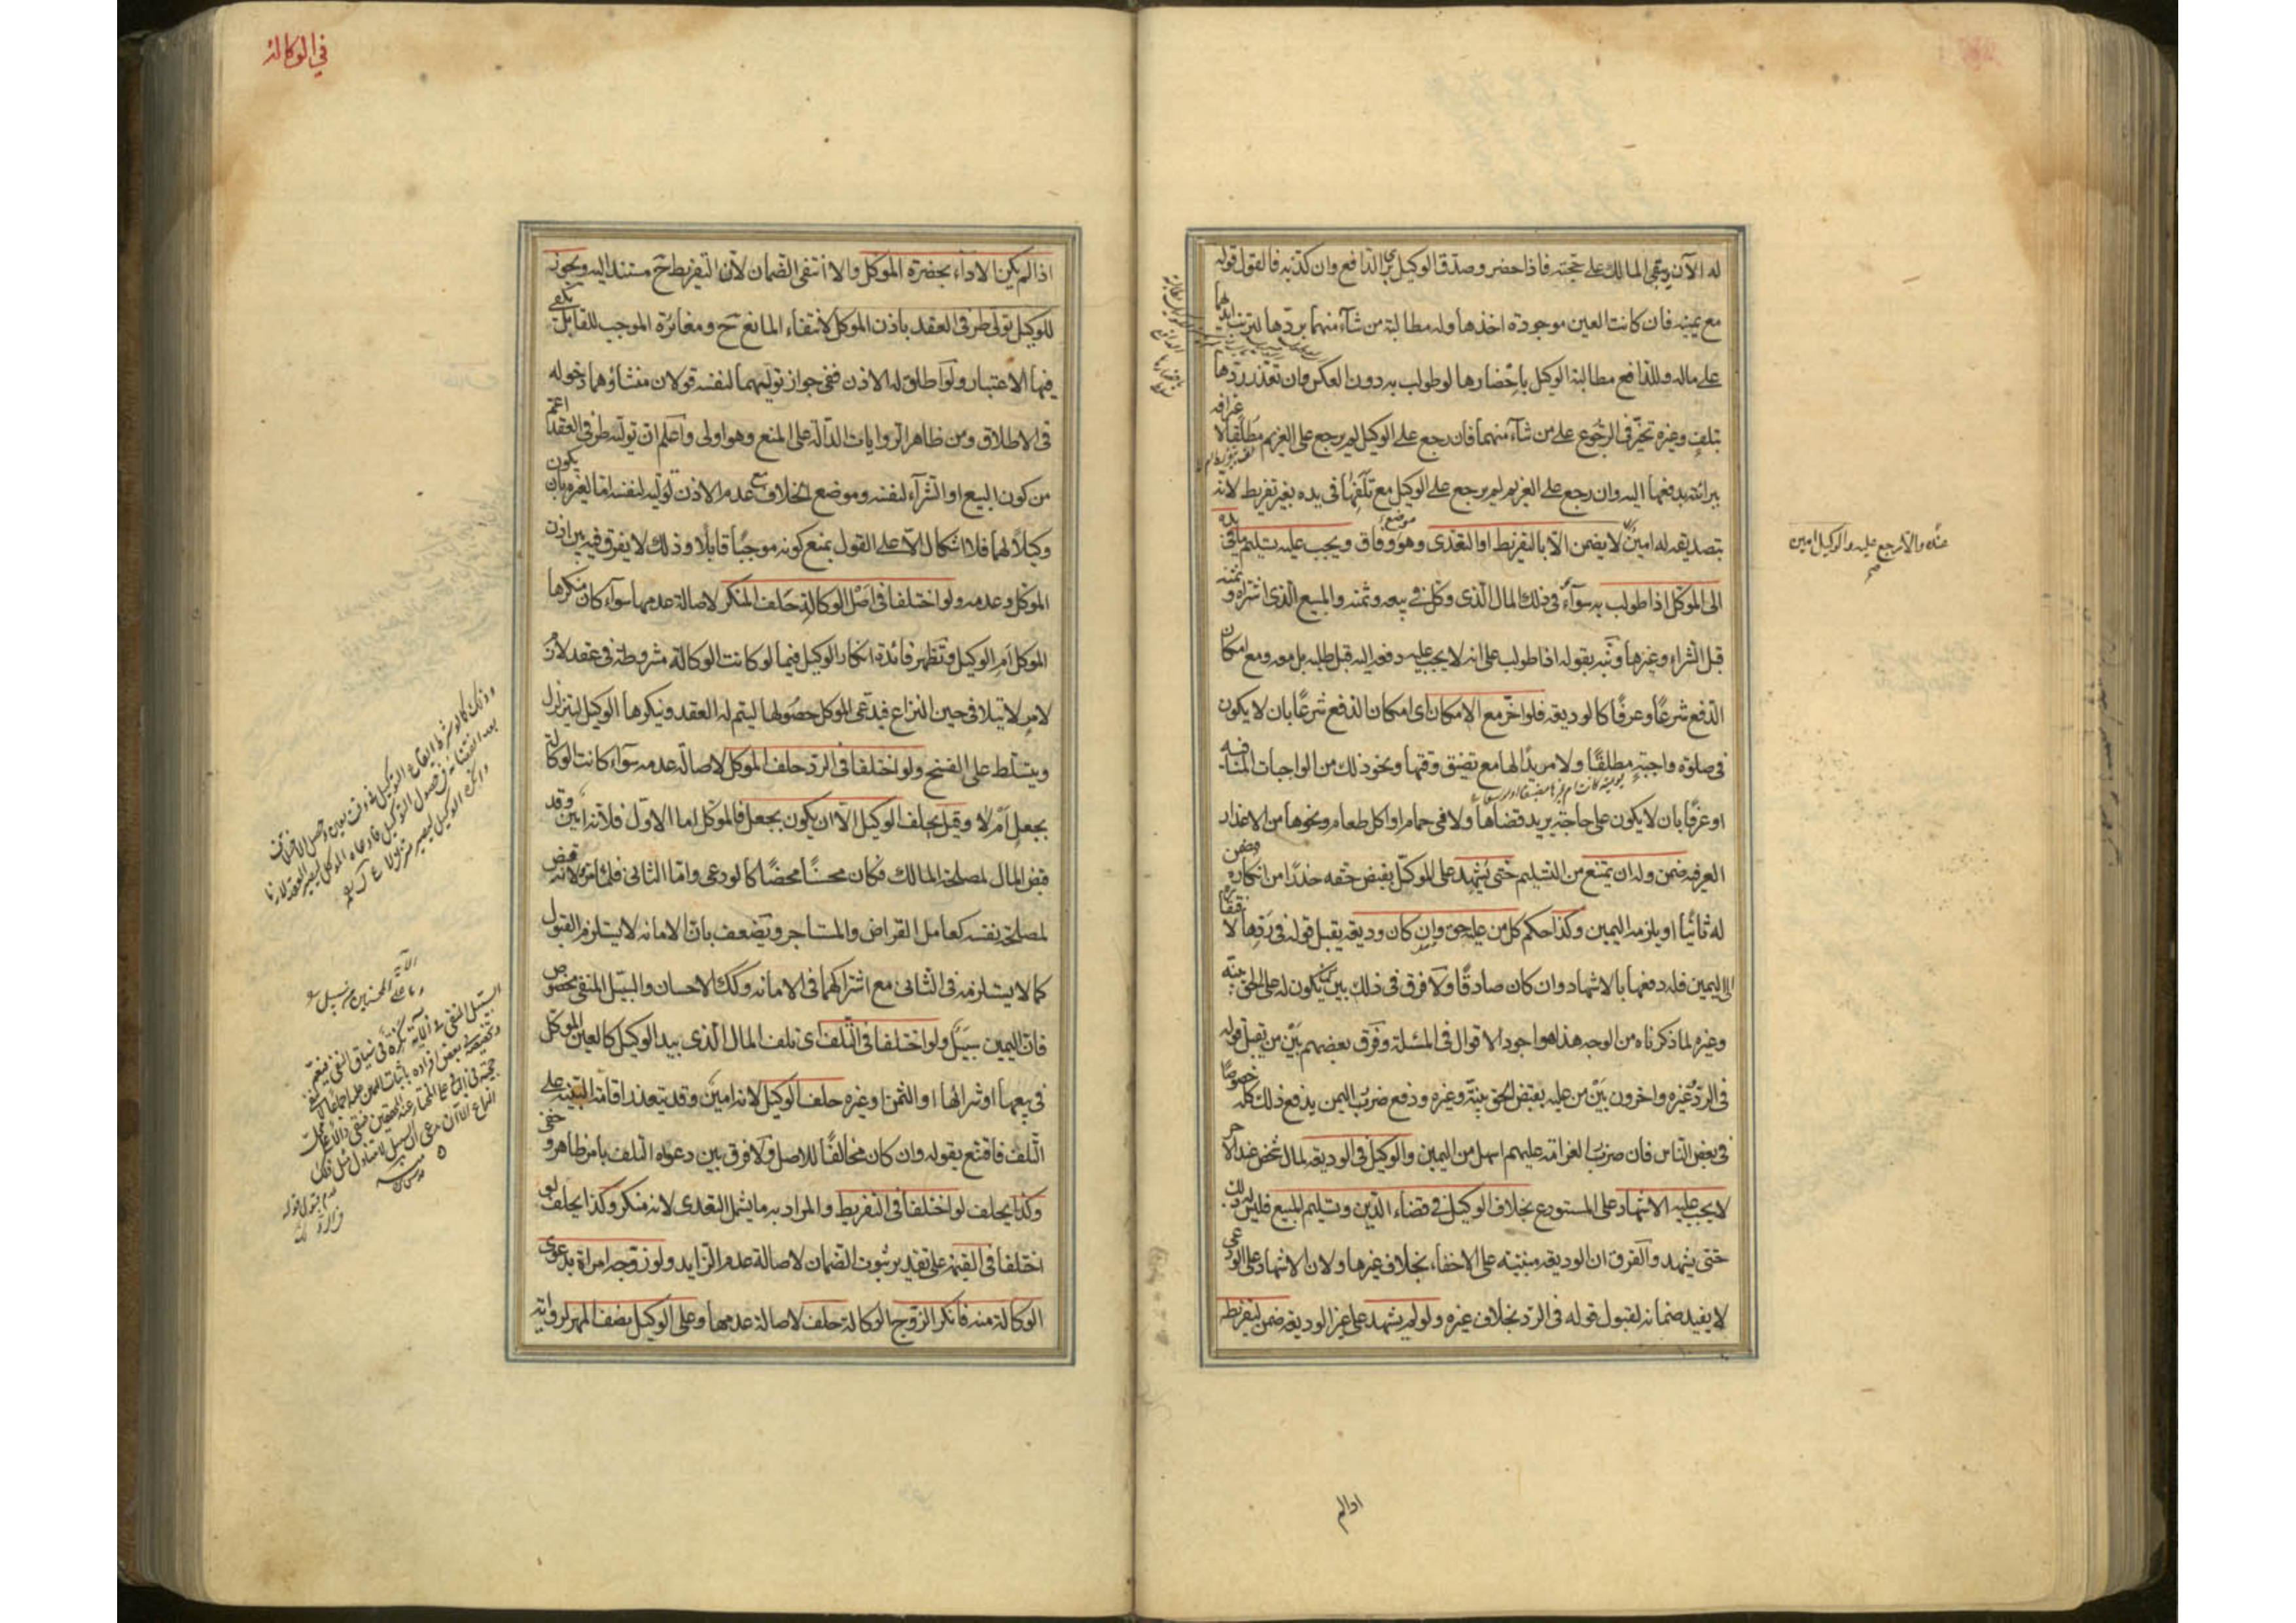 له الآن ويبقى المالك على حجته فاذا حضر وصدق الوكيل برئ الدافع وان كذبه فالقول قوله
مع يمينه فان كانت العين موجودة اخذها وله مطالبة من شآء منهما بردها لترتب ايديهما
على ماله وللدافع مطالبة الوكيل باحضارها لو طولب به دون العكس وان تعذر ردها
بتلف وغيره تخير فى الرجوع على من شآء منهما فان رجع على الوكيل لم يرجع على الغريم مطلقا لاعترافه
ببرائته بدفعها اليه وان رجع على الغريم لم يرجع على الوكيل مع تلفها فى يده بغير تفريط لانه
بتصديقه له امين لا يضمن الا بالتفريط او التعدى وهو موضع وفاق ويجب عليه تسليم ما فى يده
الى الموكل اذا طولب به سوآء فى ذلك المال الذى وكل فى بيعه وثمنه والمبيع الذى اشتراه وثمنه
قبل الشراء وغيرها ونبه بقوله اذا طولب على انه لا يجب عليه دفعه اليه قبل طلبه بل معه ومع امكان
الدفع شرعًا وعرفًا كالوديعة فلو اخر مع الامكان اى امكان الدفع شرعًا بان لا يكون
فى صلوة واجبة مطلقًا ولا مريدًا لها مع تضيق وقتها ونحو ذلك من الواجبات المنافية
او عرفًا بان لا يكون على حاجة يريد قضاها ولا فى حمام او اكل طعام ونحوها من الاعذار
العرفيه ضمن وله ان يمتنع من التسليم حتى يشهد على الموكل بقبض حقه حذرًا من انكاره فيضمن
له ثانيًا او يلزمه اليمين وكذا حكم كل من عليه حق وان كان وديعة يقبل قوله فى ردها لافتقاره
الى اليمين فله دفعها بالاشهاد وان كان صادقًا ولا فرق فى ذلك بين من يكون له على الحق بينة
وغيره لما ذكرناه من الوجه هذا هو اجود الاقوال فى المسئلة وفرق بعضهم بين من يقبل قوله
فى الرد وغيره واخرون بين من عليه بقبض الحق بينة وغيره ودفع ضرر اليمين يدفع ذلك كله خصوصًا
فى بعض الناس فان ضرر الغرامة عليهم اسهل من اليمين والوكيل فى الوديعة لمال شخص عند الاخر
لا يجب عليه الاشهاد على المستودع بخلاف الوكيل فى قضاء الدين وتسليم المبيع فليس له ذلك
حتى يشهد والفرق ان الوديعة مبنية على الاخفاء بخلاف غيرها ولان الاشهاد على الودعى
لا يفيد ضمانه لقبول قوله فى الرد بخلاف غيره ولو لم يشهد على غير الوديعة ضمن لتفريطه
عنده والا رجع عليه والوكيل امين
صح
اذا لم
فى الوكالة
اذا لم يكن الاداء بحضرة الموكل والا انتفى الضمان لان التفريط ح مستند اليه ويجوز
للوكيل تولى طرفى العقد باذن الموكل لانتفاء المانع ح ومغائرة الموجب للقابل يكفى
فيها الاعتبار ولو اطلق له الاذن ففى جواز توليهما لنفسه قولان منشاؤهما دخوله
فى الاطلاق ومن ظاهر الروايات الدالة على المنع وهو اولى واعلم ان توليه طرفى العقد اعم
من كون البيع او الشرآء لنفسه وموضع الخلاف مع عدم الاذن توليه لنفسه اما لغيره بان يكون
وكيلًا لهما فلا اشكال الا على القول بمنع كونه موجبًا قابلًا وذلك لا يفرق فيه بين اذن
الموكل وعدمه ولو اختلفا فى اصل الوكالة حلف المنكر لاصالة عدمها سوآء كان منكرها
الموكل ام الوكيل وتظهر فائدة انكار الوكيل فيما لو كانت الوكالة مشروطة فى عقد لازم
لامر لا يتلافى حين النزاع فيدعى الموكل حصولها ليتم له العقد وينكرها الوكيل ليتزلزل
ويتسلط على الفسخ ولو اختلفا فى الرد حلف الموكل لاصالة عدمه سوآء كانت الوكالة
بجعل ام لا وقيل يحلف الوكيل الا ان يكون بجعل فالموكل اما الاول فلانه امين وقد
قبض المال لمصلحة المالك فكان محسنًا محضًا كالودعى واما الثانى فلما مر ولانه قبض
لمصلحة نفسه كعامل القراض والمستاجر ويضعف بان الامانة لا يستلزم القبول
كما لا يستلزمه فى الثانى مع اشتراكهما فى الامانة وكك الاحسان والسبيل المنفى مخصوص
فان اليمين سبيل ولو اختلفا فى التلف اى تلف المال الذى بيد الوكيل كالعين الموكل
فى بيعها او شرائها او الثمن او غيره حلف الوكيل لانه امين وقد يتعذر اقامة البينة على
التلف فاقتنع بقوله وان كان مخالفًا للاصل ولا فرق بين دعواه التلف بامر ظاهر وخفى
وكذا يحلف لو اختلفا فى التفريط والمراد به ما يشمل التعدى لانه منكر وكذا يحلف لو
اختلفا فى القيمة على تقدير ثبوت الضمان لاصالة عدم الزايد ولو زوجه امراة بدعوى
الوكالة منه فانكر الزوج الوكالة حلف لاصالة عدمها وعلى الوكيل نصف المهر لرواية